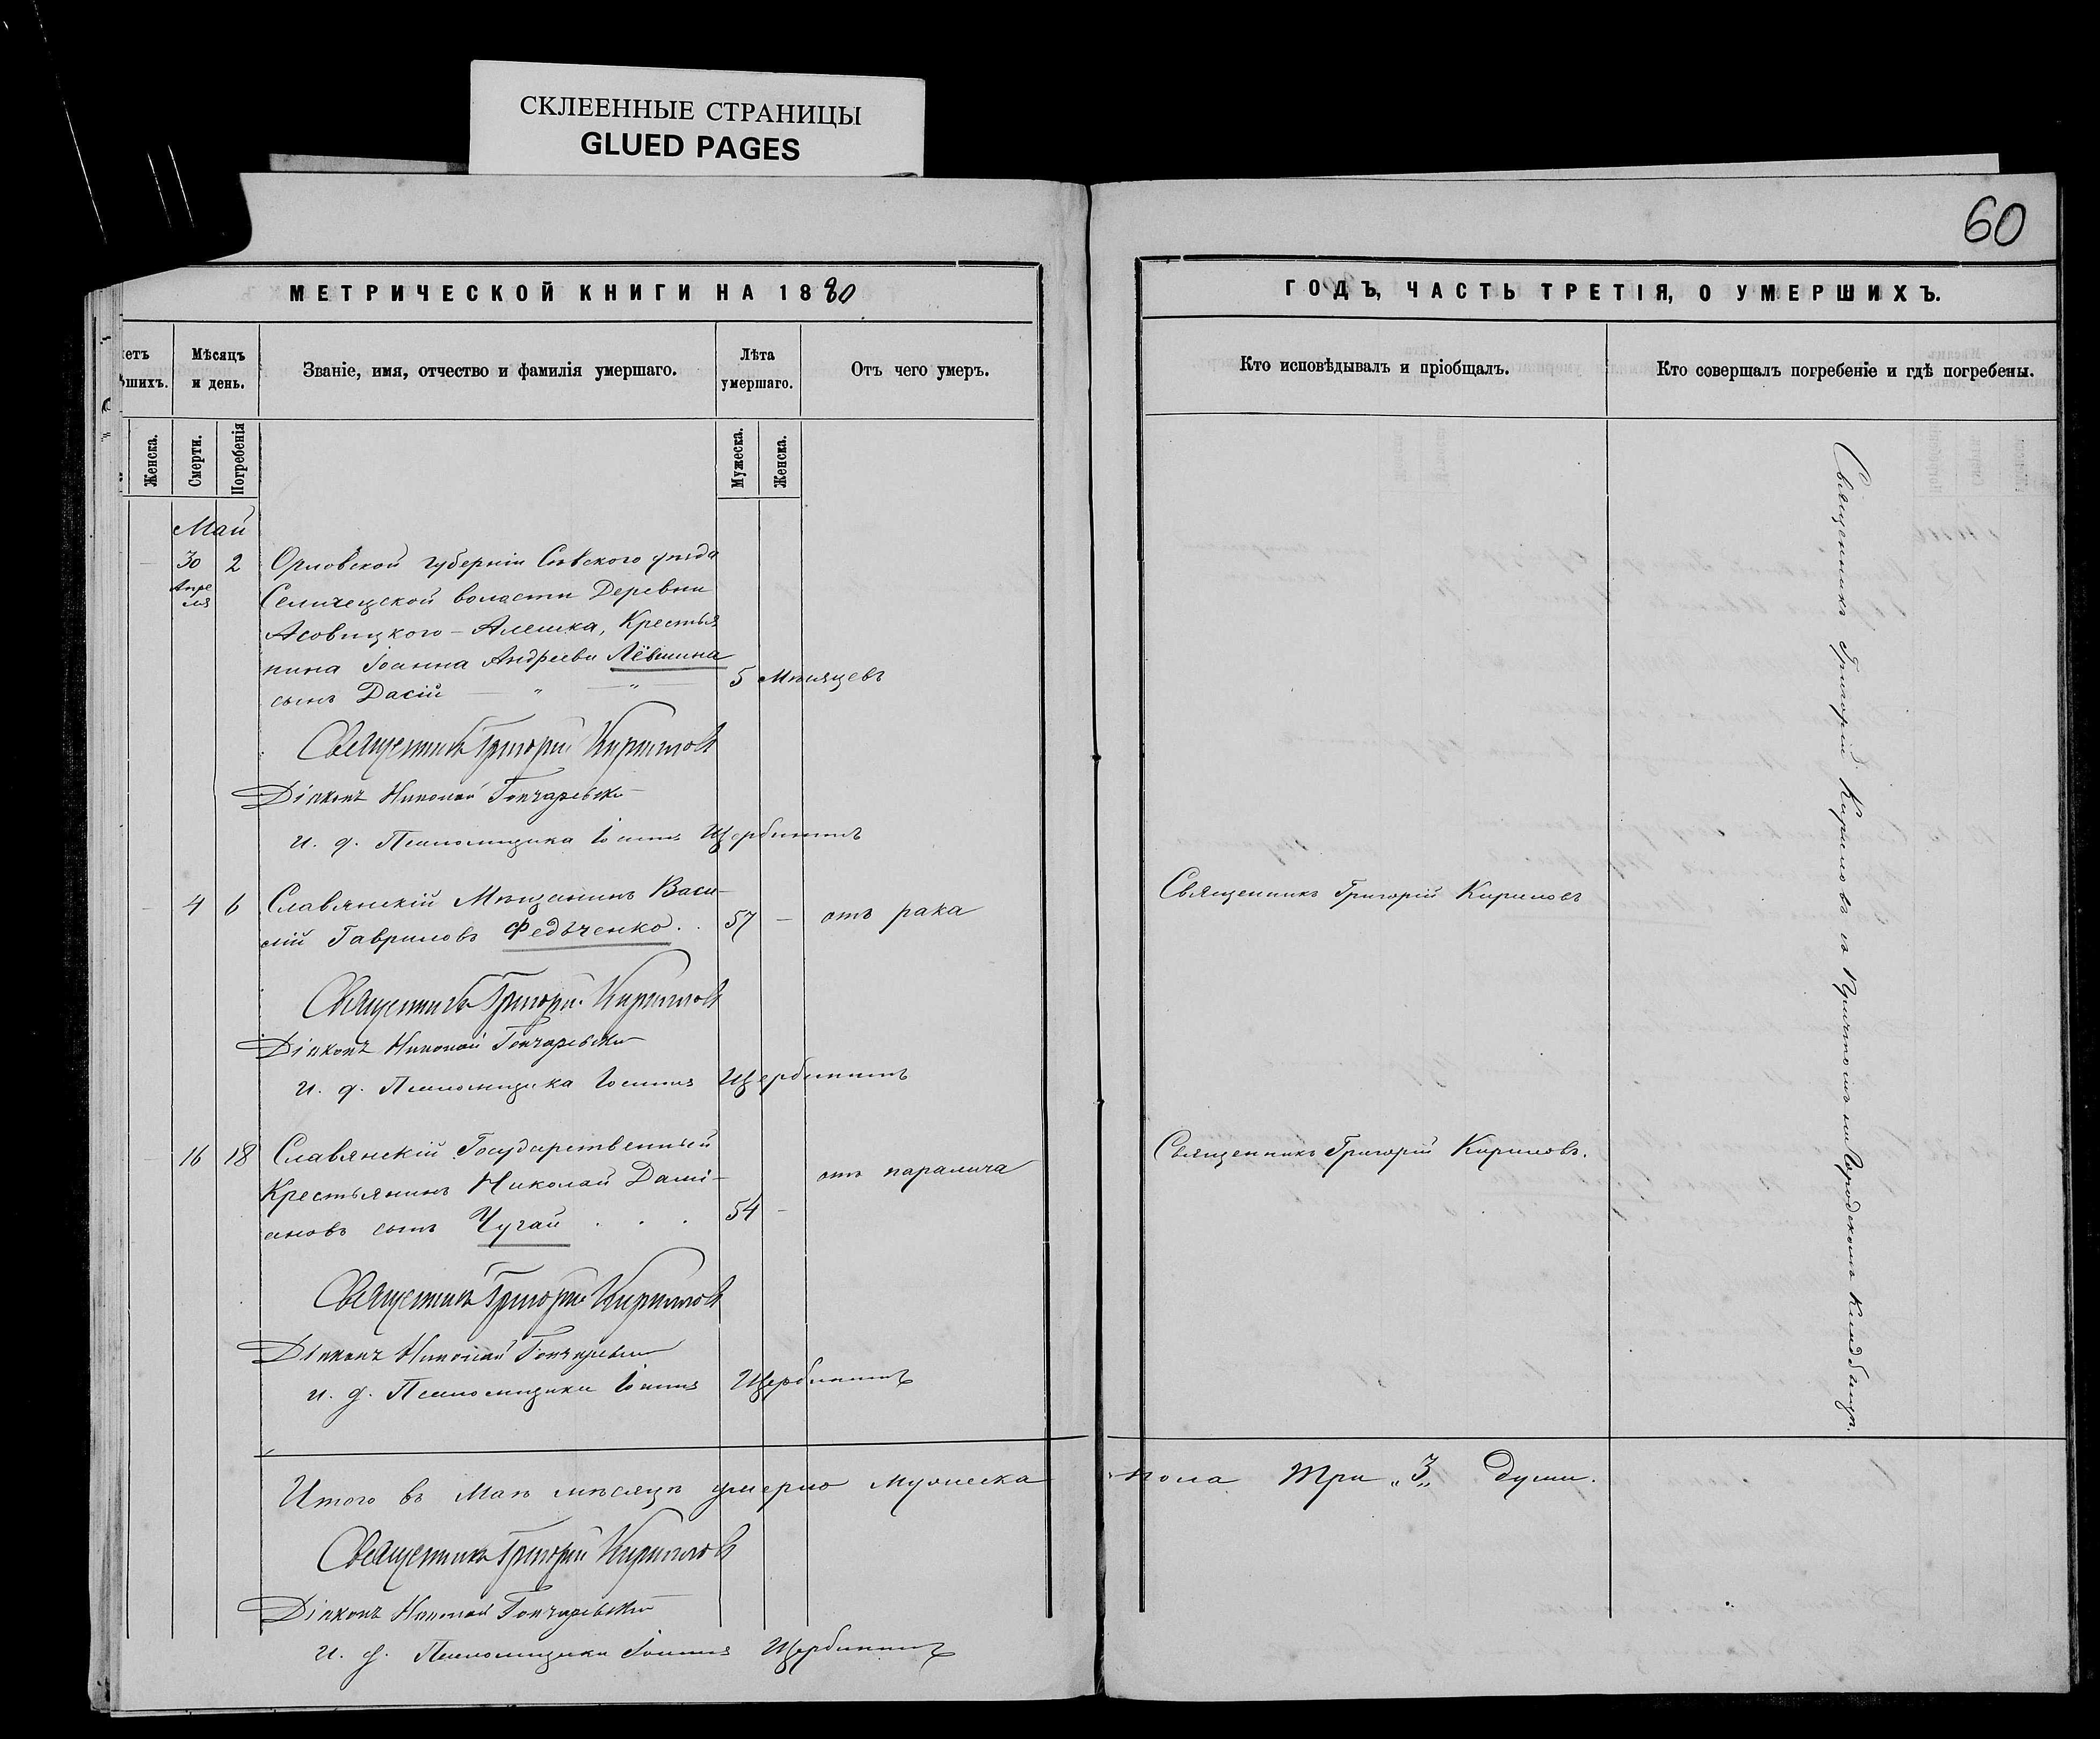 СКЛЕЕННЫЕ СТРАНИЦЫ
GLUED PAGES
60
МЕТРИЧЕСКОЙ КНИГИ НА 1880
ГОДЪ, ЧАСТЬ ТРЕТІЯ, О УМЕРШИХЪ.
Мѣсяцъ и день.
Званіе, имя, отчество и фамилія умершаго.
Лѣта умершаго.
Отъ чего умеръ.
Кто исповѣдывалъ и пріобщалъ.
Кто совершалъ погребеніе и гдѣ погребены.
Женска.
Смерти.
Погребенія
Мужеска.
Женска.
Май
30 2 Орловской губерніи Сѣвского уѣзда
Апре
ля
волости Деревни
Алешка, Крестья
нина Іоанна Андреева Лёвшина
сынъ Дасій 5 Мѣсяцевъ
Священникъ Григорій Кириловъ
Діаконъ Николай Гончаревскій
и. д. Псаломщика Іоаннъ Щербининъ
4 6 Славянскій Мѣщанинъ Васи-
лій Гавриловъ Федьченко . . 57 — отъ рака
Священникъ Григорій Кириловъ
Священникъ Григорій Кириловъ
Діаконъ Николай Гончаревскій
и. д. Псаломщика Іоаннъ Щербининъ
16 18 Славянскій Государственный
Крестьянинъ Николай Дамі-
ановъ сынъ Чугай . . . 54 — отъ паралича
Священникъ Григорій Кириловъ.
Священникъ Григорій Кириловъ
Діаконъ Николай Гончаревскій
и. д. Псаломщика Іоаннъ Щербининъ
Священникъ Григорій Кириловъ съ Причтомъ на Городскомъ Кладбищѣ.
Итого въ Маѣ мѣсяцѣ умерло мужеска пола три „3„ души.
Священникъ Григорій Кириловъ
Діаконъ Николай Гончаревскій
и. д. Псаломщика Іоаннъ Щербининъ